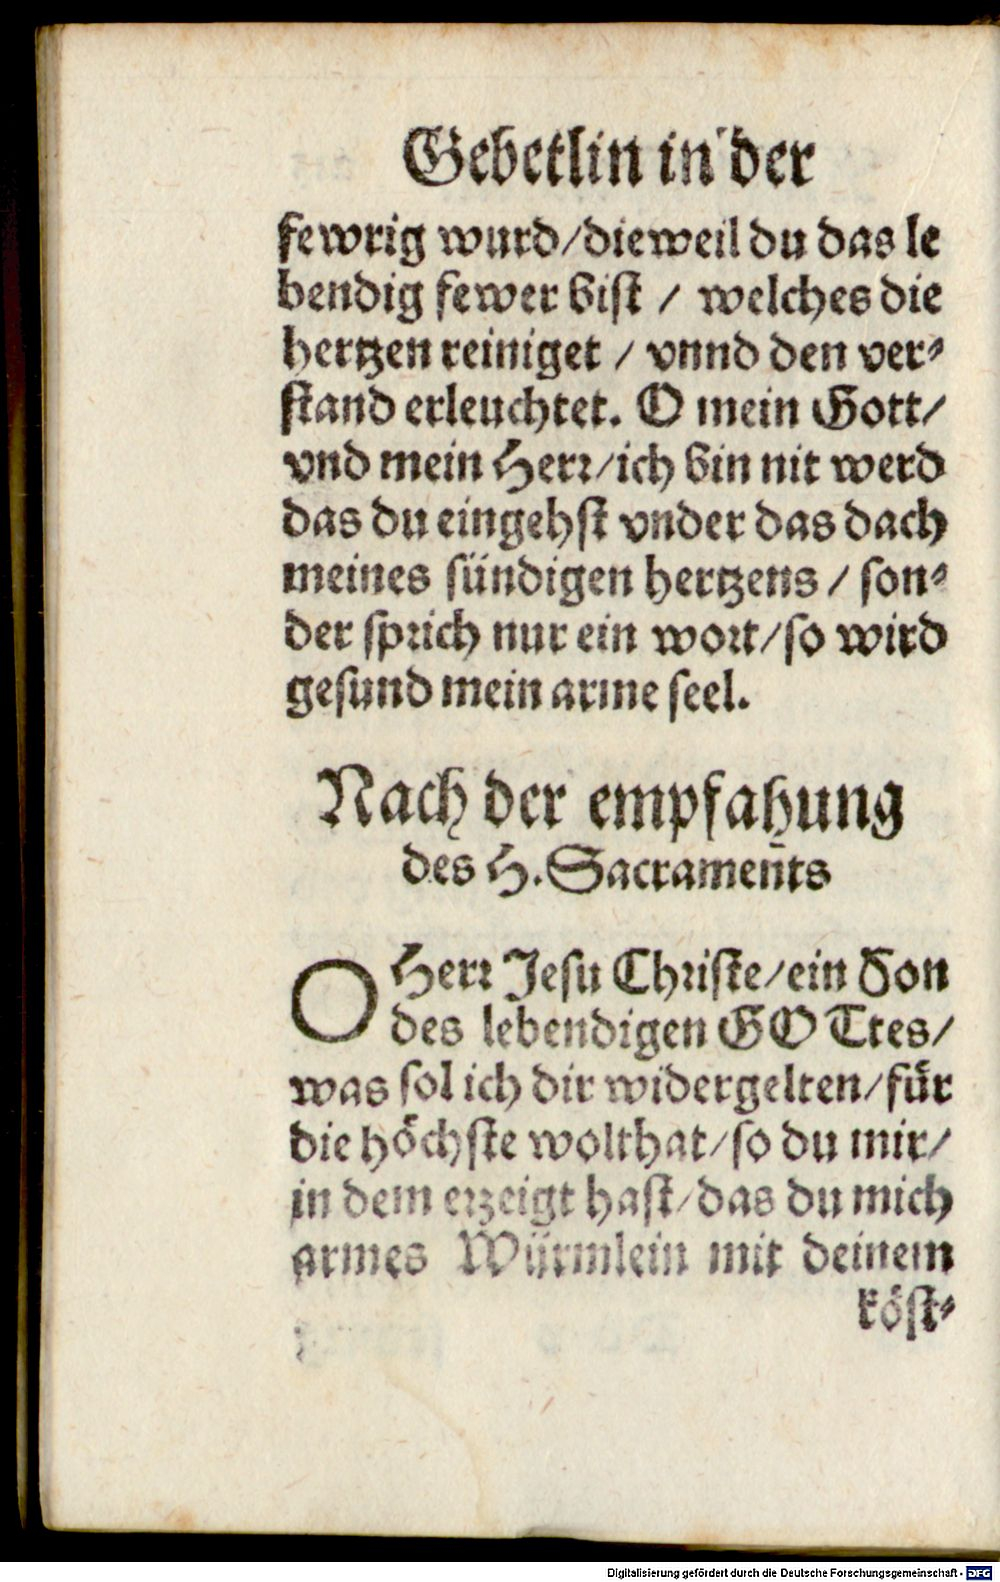 Gebetlin in der
fewrig wurd/dieweil du das le
bendig fewer bist / welches die
hertzen reiniget / vnnd den ver-
stand erleuchtet. O mein Gott/
vnd mein Herr/ich bin nit werd
das du eingehst vnder das dach
meines sündigen hertzens / son-
der sprich nur ein wort/so wird
gesund mein arme seel.
Nach der empfahung
des H. Sacraments
O Herr Jesu Christe/ein Son
des lebendigen GOTtes/
was sol ich dir widergelten/für
die höchste wolthat/so du mir/
in dem erzeigt hast/das du mich
armes Würmlein mit deinem
köst-
Digitalisierung gefördert durch die Deutsche Forschungsgemeinschaft - DFG